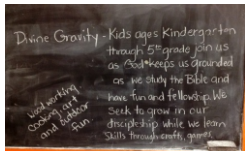 Divine Gravity - Kids ages Kindergarten
through 5th grade join us
as God keeps us grounded
as we study the Bible and
have fun and fellowship. We
seek to grow in our
discipleship while we learn
skills through crafts, games,
wood working
cooking, art
and outdoor
fun